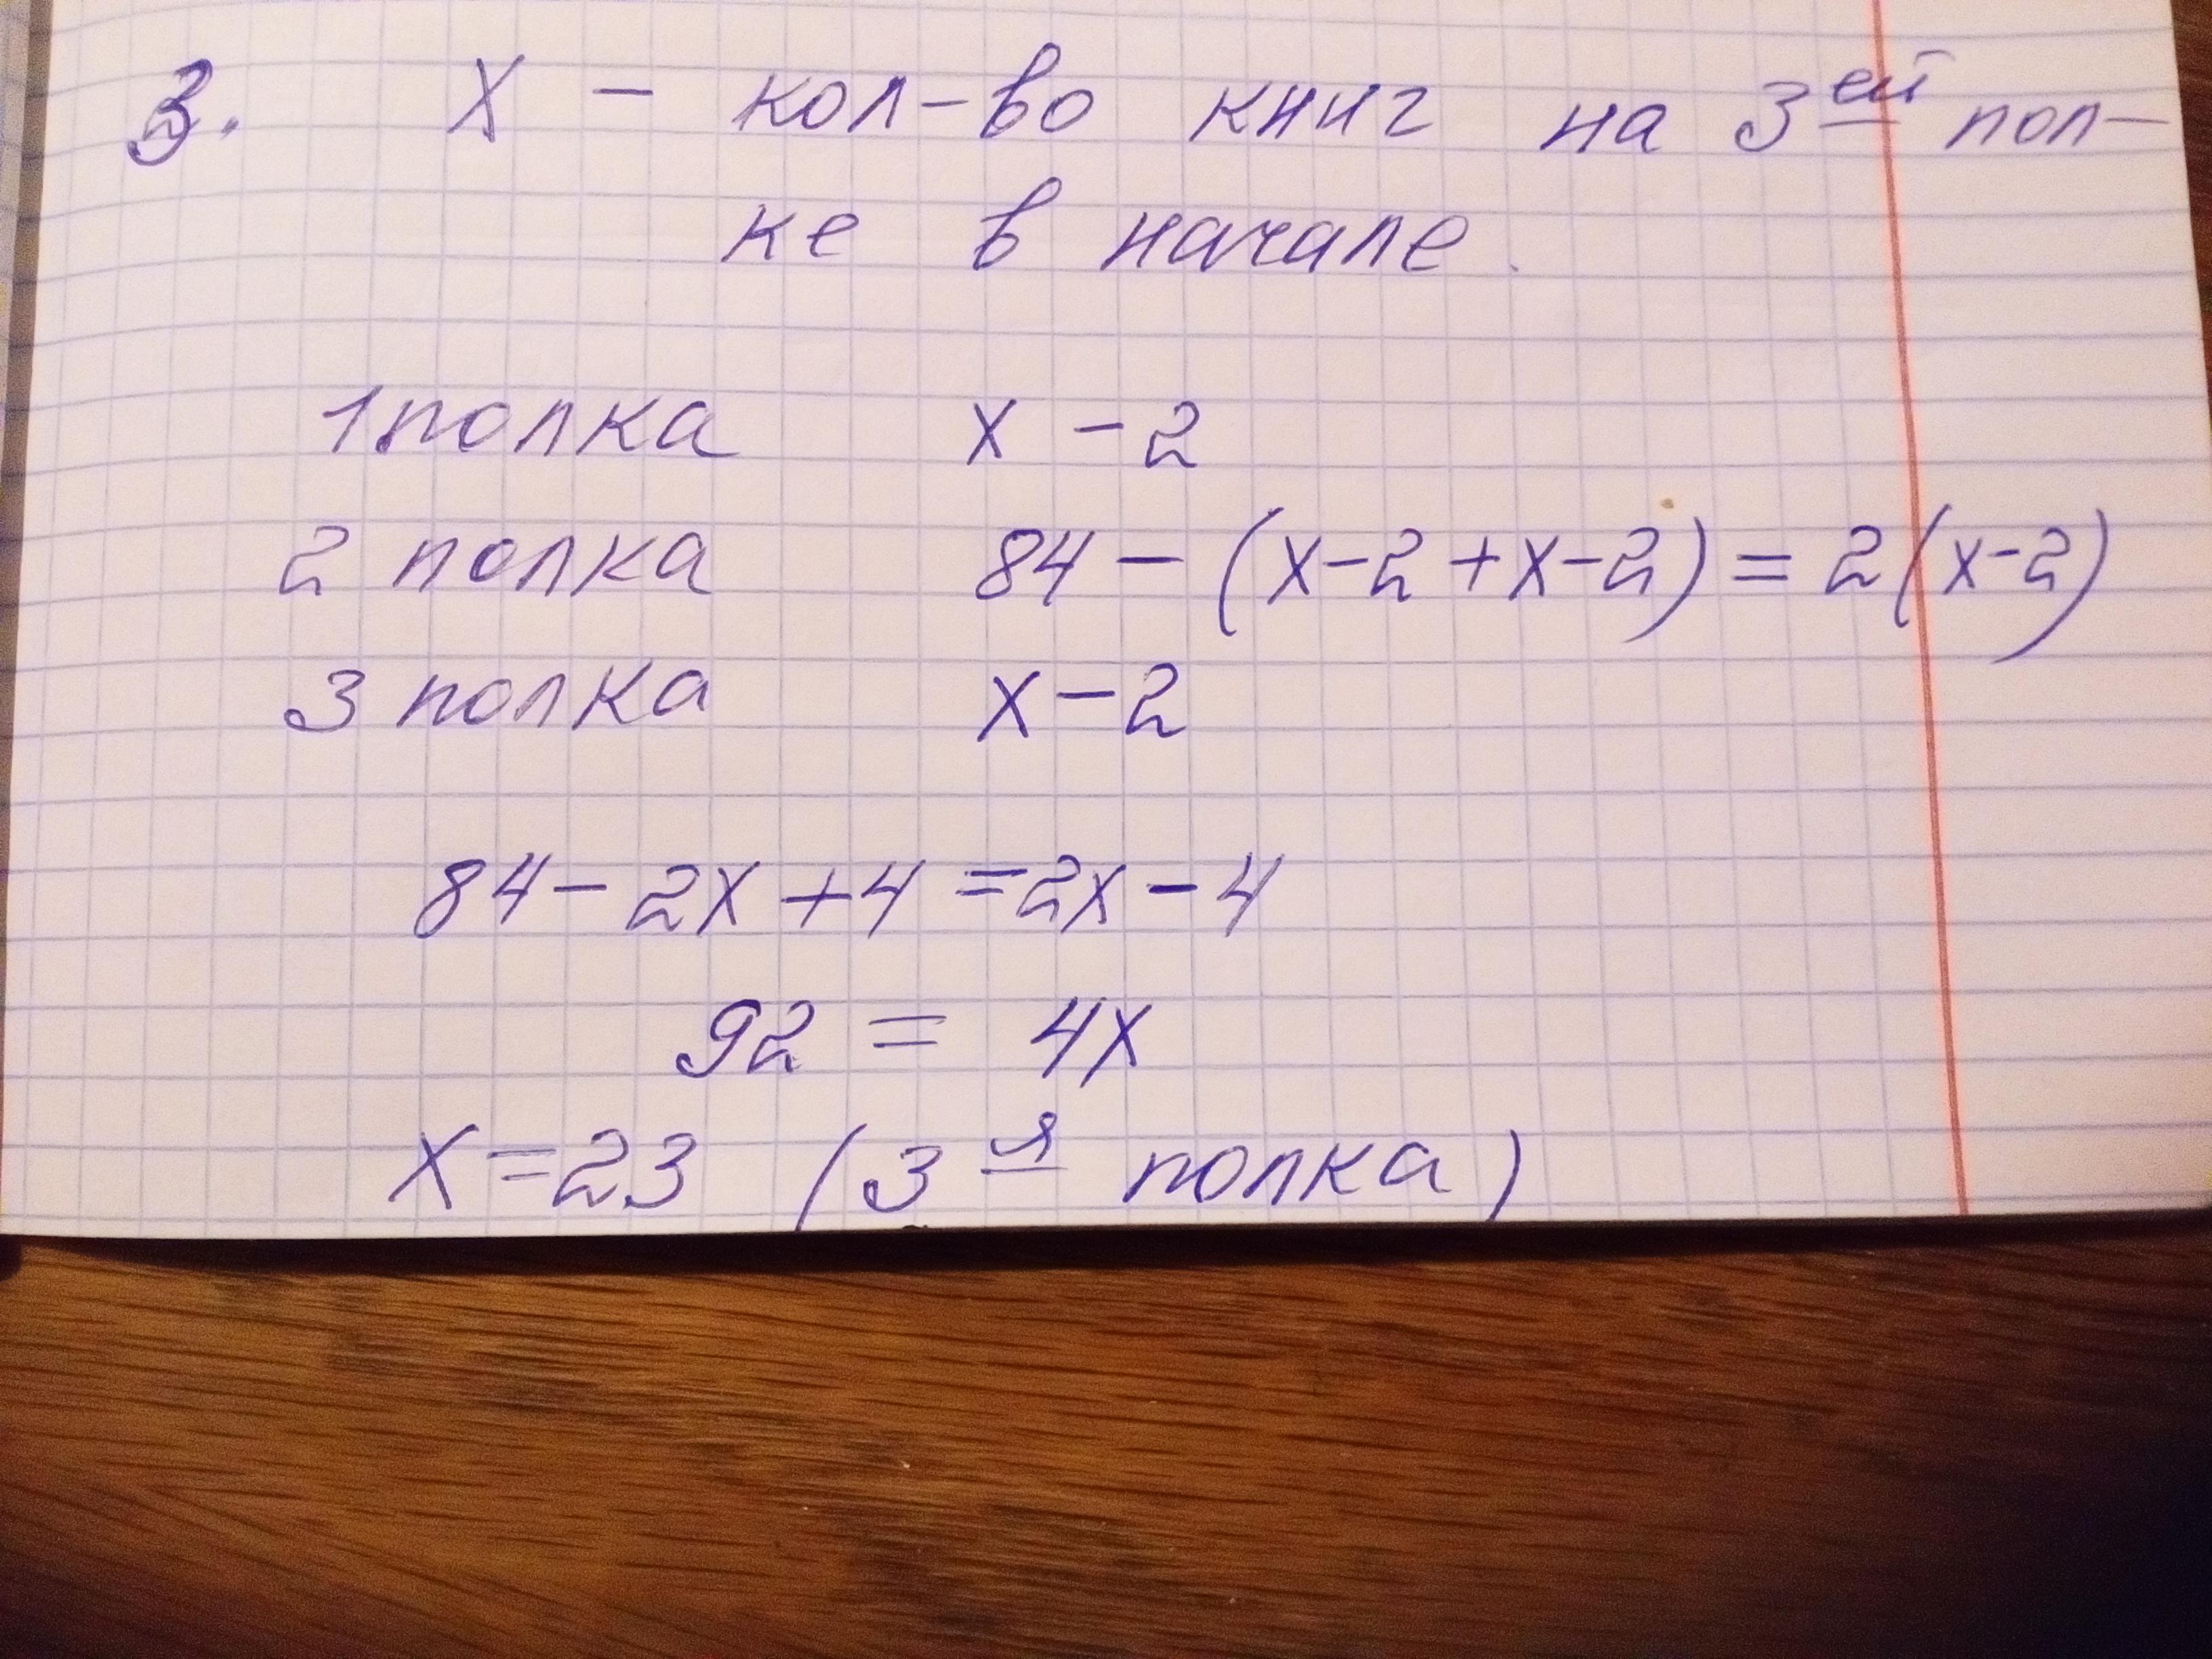 3. X – кол-во книг на 3ей пол-
ке в начале.
1 полка x - 2
2 полка 84 - (x-2+x-2) = 2(x-2)
3 полка x - 2
84 - 2x + 4 = 2x - 4
92 = 4x
X = 23 (3я полка)